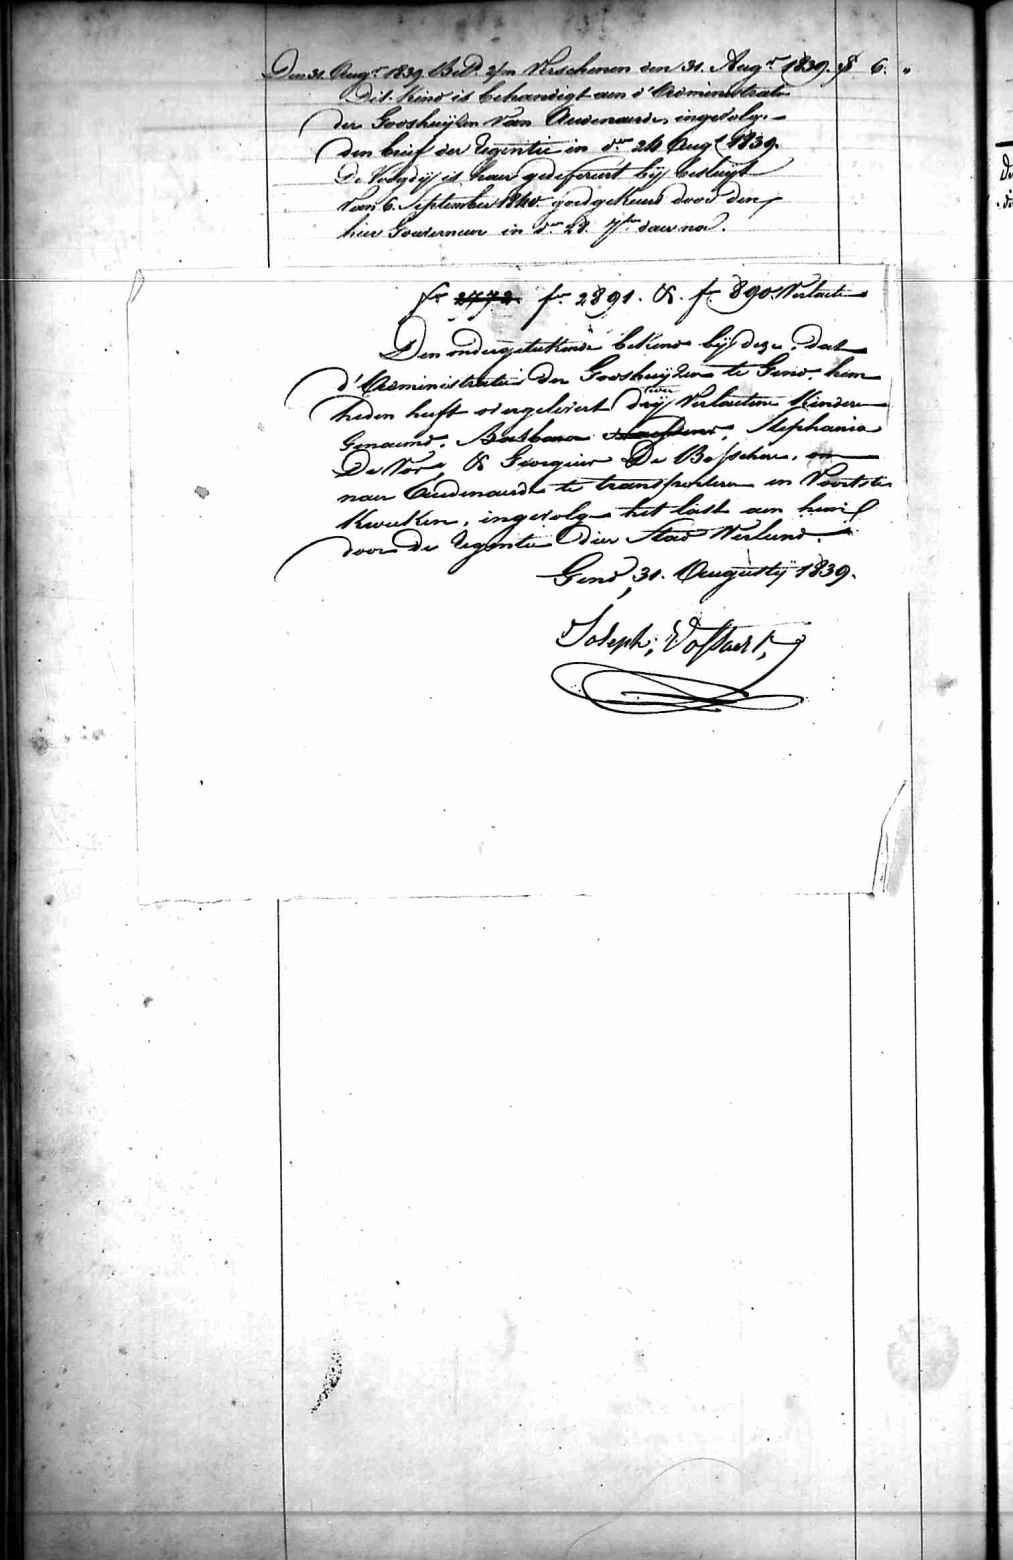 Den 31 Augt 1839 Betd 2/m Verschenen den 31. Augt 1839. f 6. "
Dit Kind is behandigt aen d'Administratie
der Godshuijsen van Audenaerde, ingevolge
den brief der Regentie in dat 24 Augt 1839.
De Voogdij is haer gedefereert bij besluijt
van 6. September 1840 goedgekeurd door den
heer Gouverneur in dat 28. 7ber daer na.
fo 2772 fo 2891. & fo 890 Verlaeten
Den ondergeteekende bekend bij deze, dat
d'Administratie der Godshuijsen te Gend, hem
heden heeft overgelevert drij twee Verlaetene Kinderen
Genaemd, Barbara Stephania
De Vos, & Georgius De Besscher, om
naer Audenaerde te transporteren en Voorts te
Kweeken, ingevolge het last aen hem
door de Regentie dier Stad Verleend.
Gend, 31. Augustij 1839.
Joseph, Vossaert,